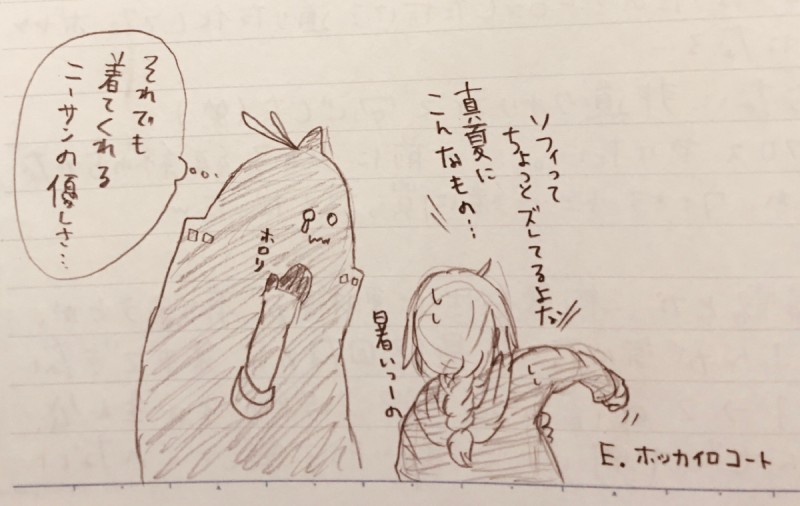 ソフィって
ちょっとズレてるよな
真夏に
こんなもの…
暑いつーの
ホロリ
それでも
着てくれる
ニーサンの優しさ…
E. ホッカイロコート